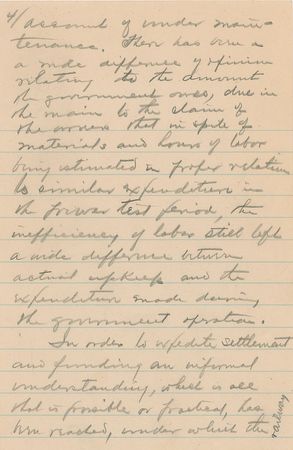 4/ account of under main-
tenance. There has been a
a wide difference of opinion
relating to the amount
the government owes, due in
the main to the claim of
the owners that in spite of
materials and hours of labor
being estimated in proper relation
to similar expenditure in
the prewar test period, the
inefficiency of labor still left
a wide difference between
actual upkeep and the
expenditure made during
the government operation.
In order to expedite settlement
and funding an informal
understanding, which is all
that is possible or practical, has
been reached, under which the
railway